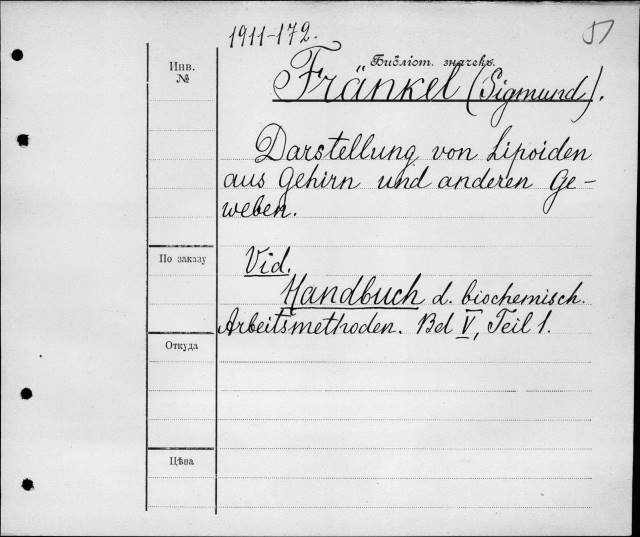 1911-172.
51
Инв.
№
Библіот. значекъ.
Fränkel (Sigmund).
Darstellung von Lipoiden
aus Gehirn und anderen Ge-
weben.
По заказу
Vid.
Handbuch d. biochemisch.
Arbeitsmethoden. Bd V, Teil 1.
Откуда
Цѣна